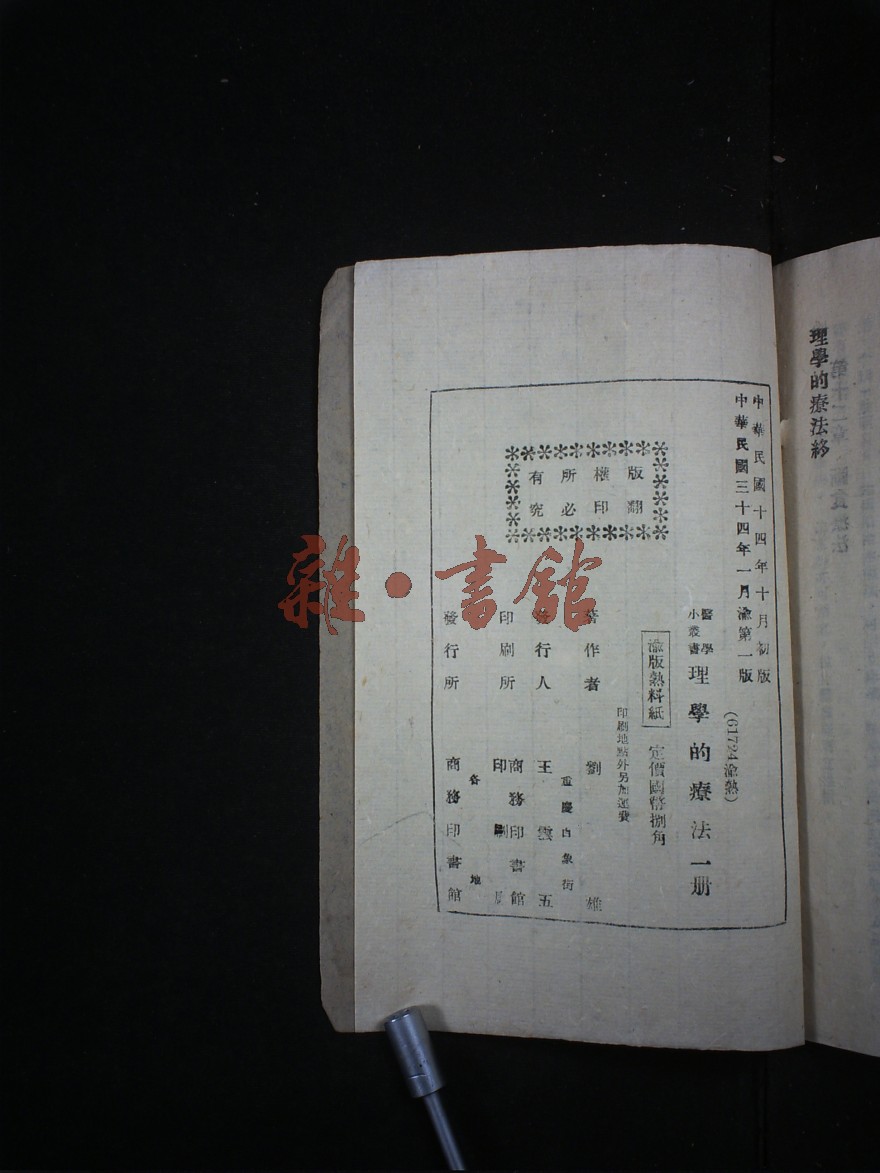 理學的療法終
中華民國十四年十月初版
中華民國三十四年一月渝第一版
(61724渝熱)
醫學
小叢書
理學的療法一册
渝版熱料紙
定價國幣捌角
印刷地點外另加運費
版權所有
翻印必究
著作者 劉雄
發行人 王雲五
重慶白象街
印刷所 商務印書館
印刷廠
發行所 商務印書館
各地
雜·書館